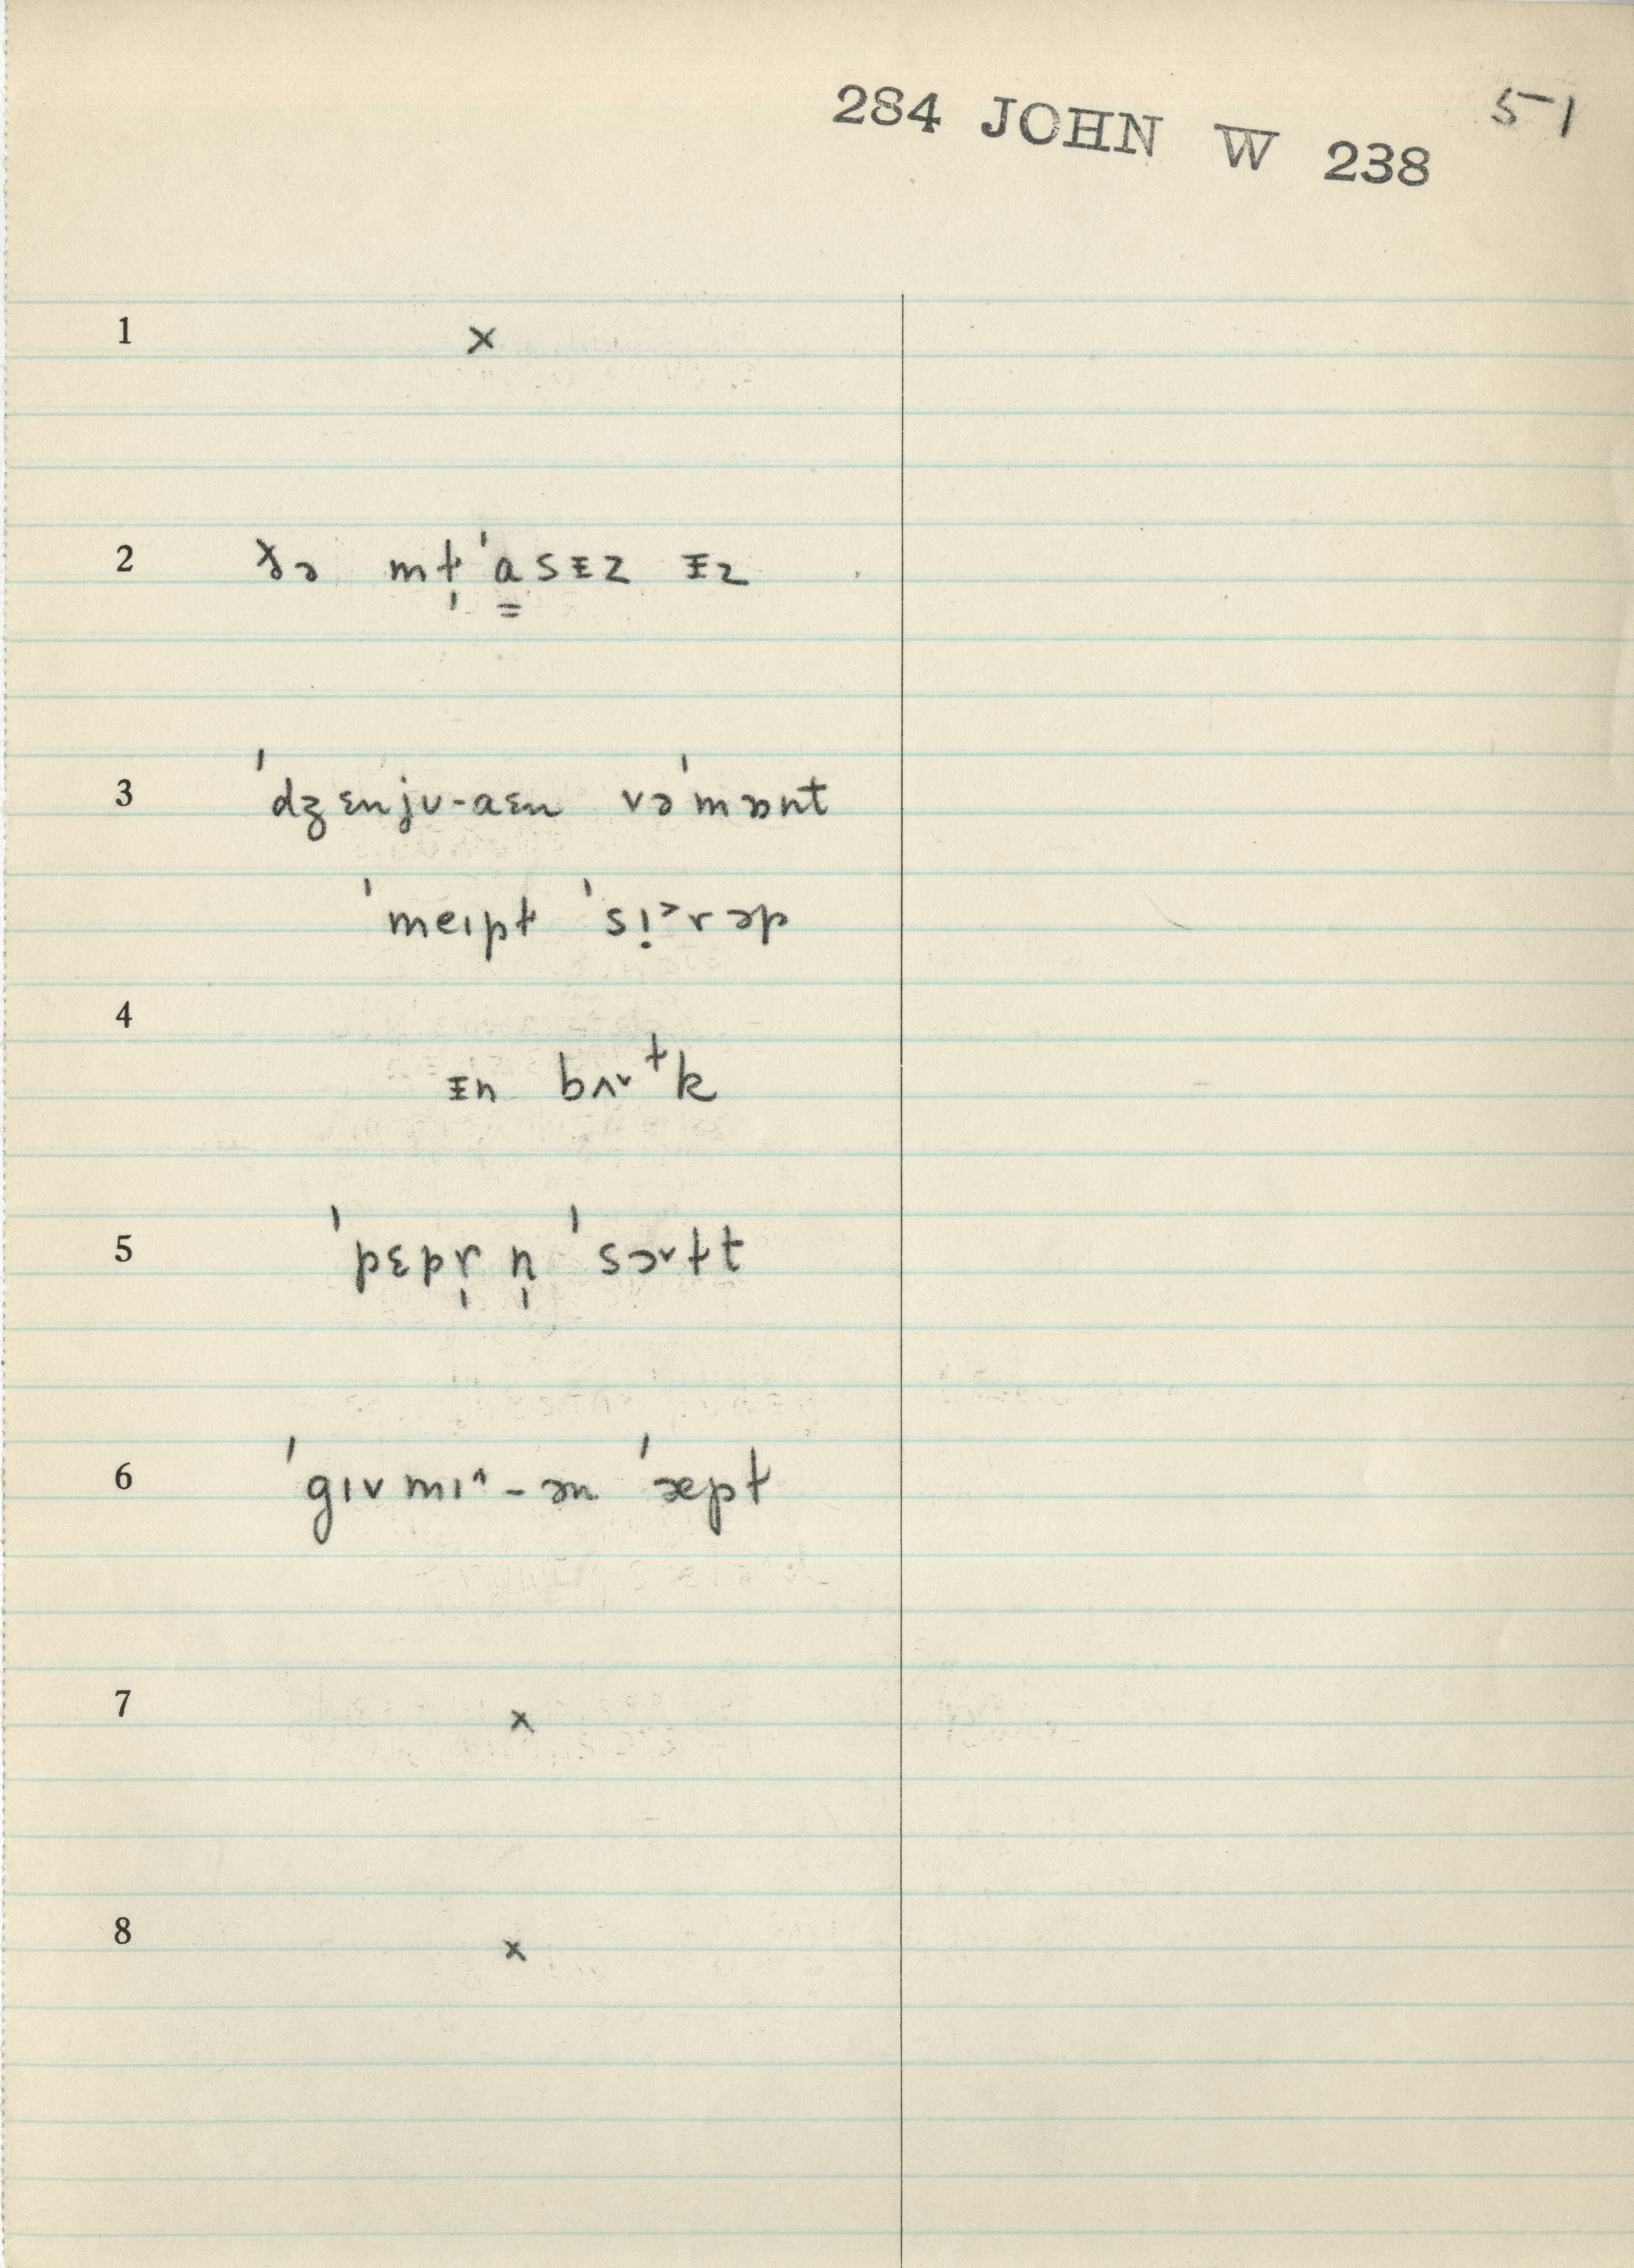 284 JOHN W 238
5-1
1 x
2 ðə mt̩ˈa̳sᵻz ᵻz
3 ˈdʒɛnjʊ-aɛn vəˈmɒnt
ˈmeɪpt ˈsi̩˃rəp
4
ᵻn bʌ˅ᵗk
5 ˈpɛpr̩ n̩ ˈsɔ˅tt
6 ˈgɪvmɪ^-ən ˈæpt
7 x
8 x